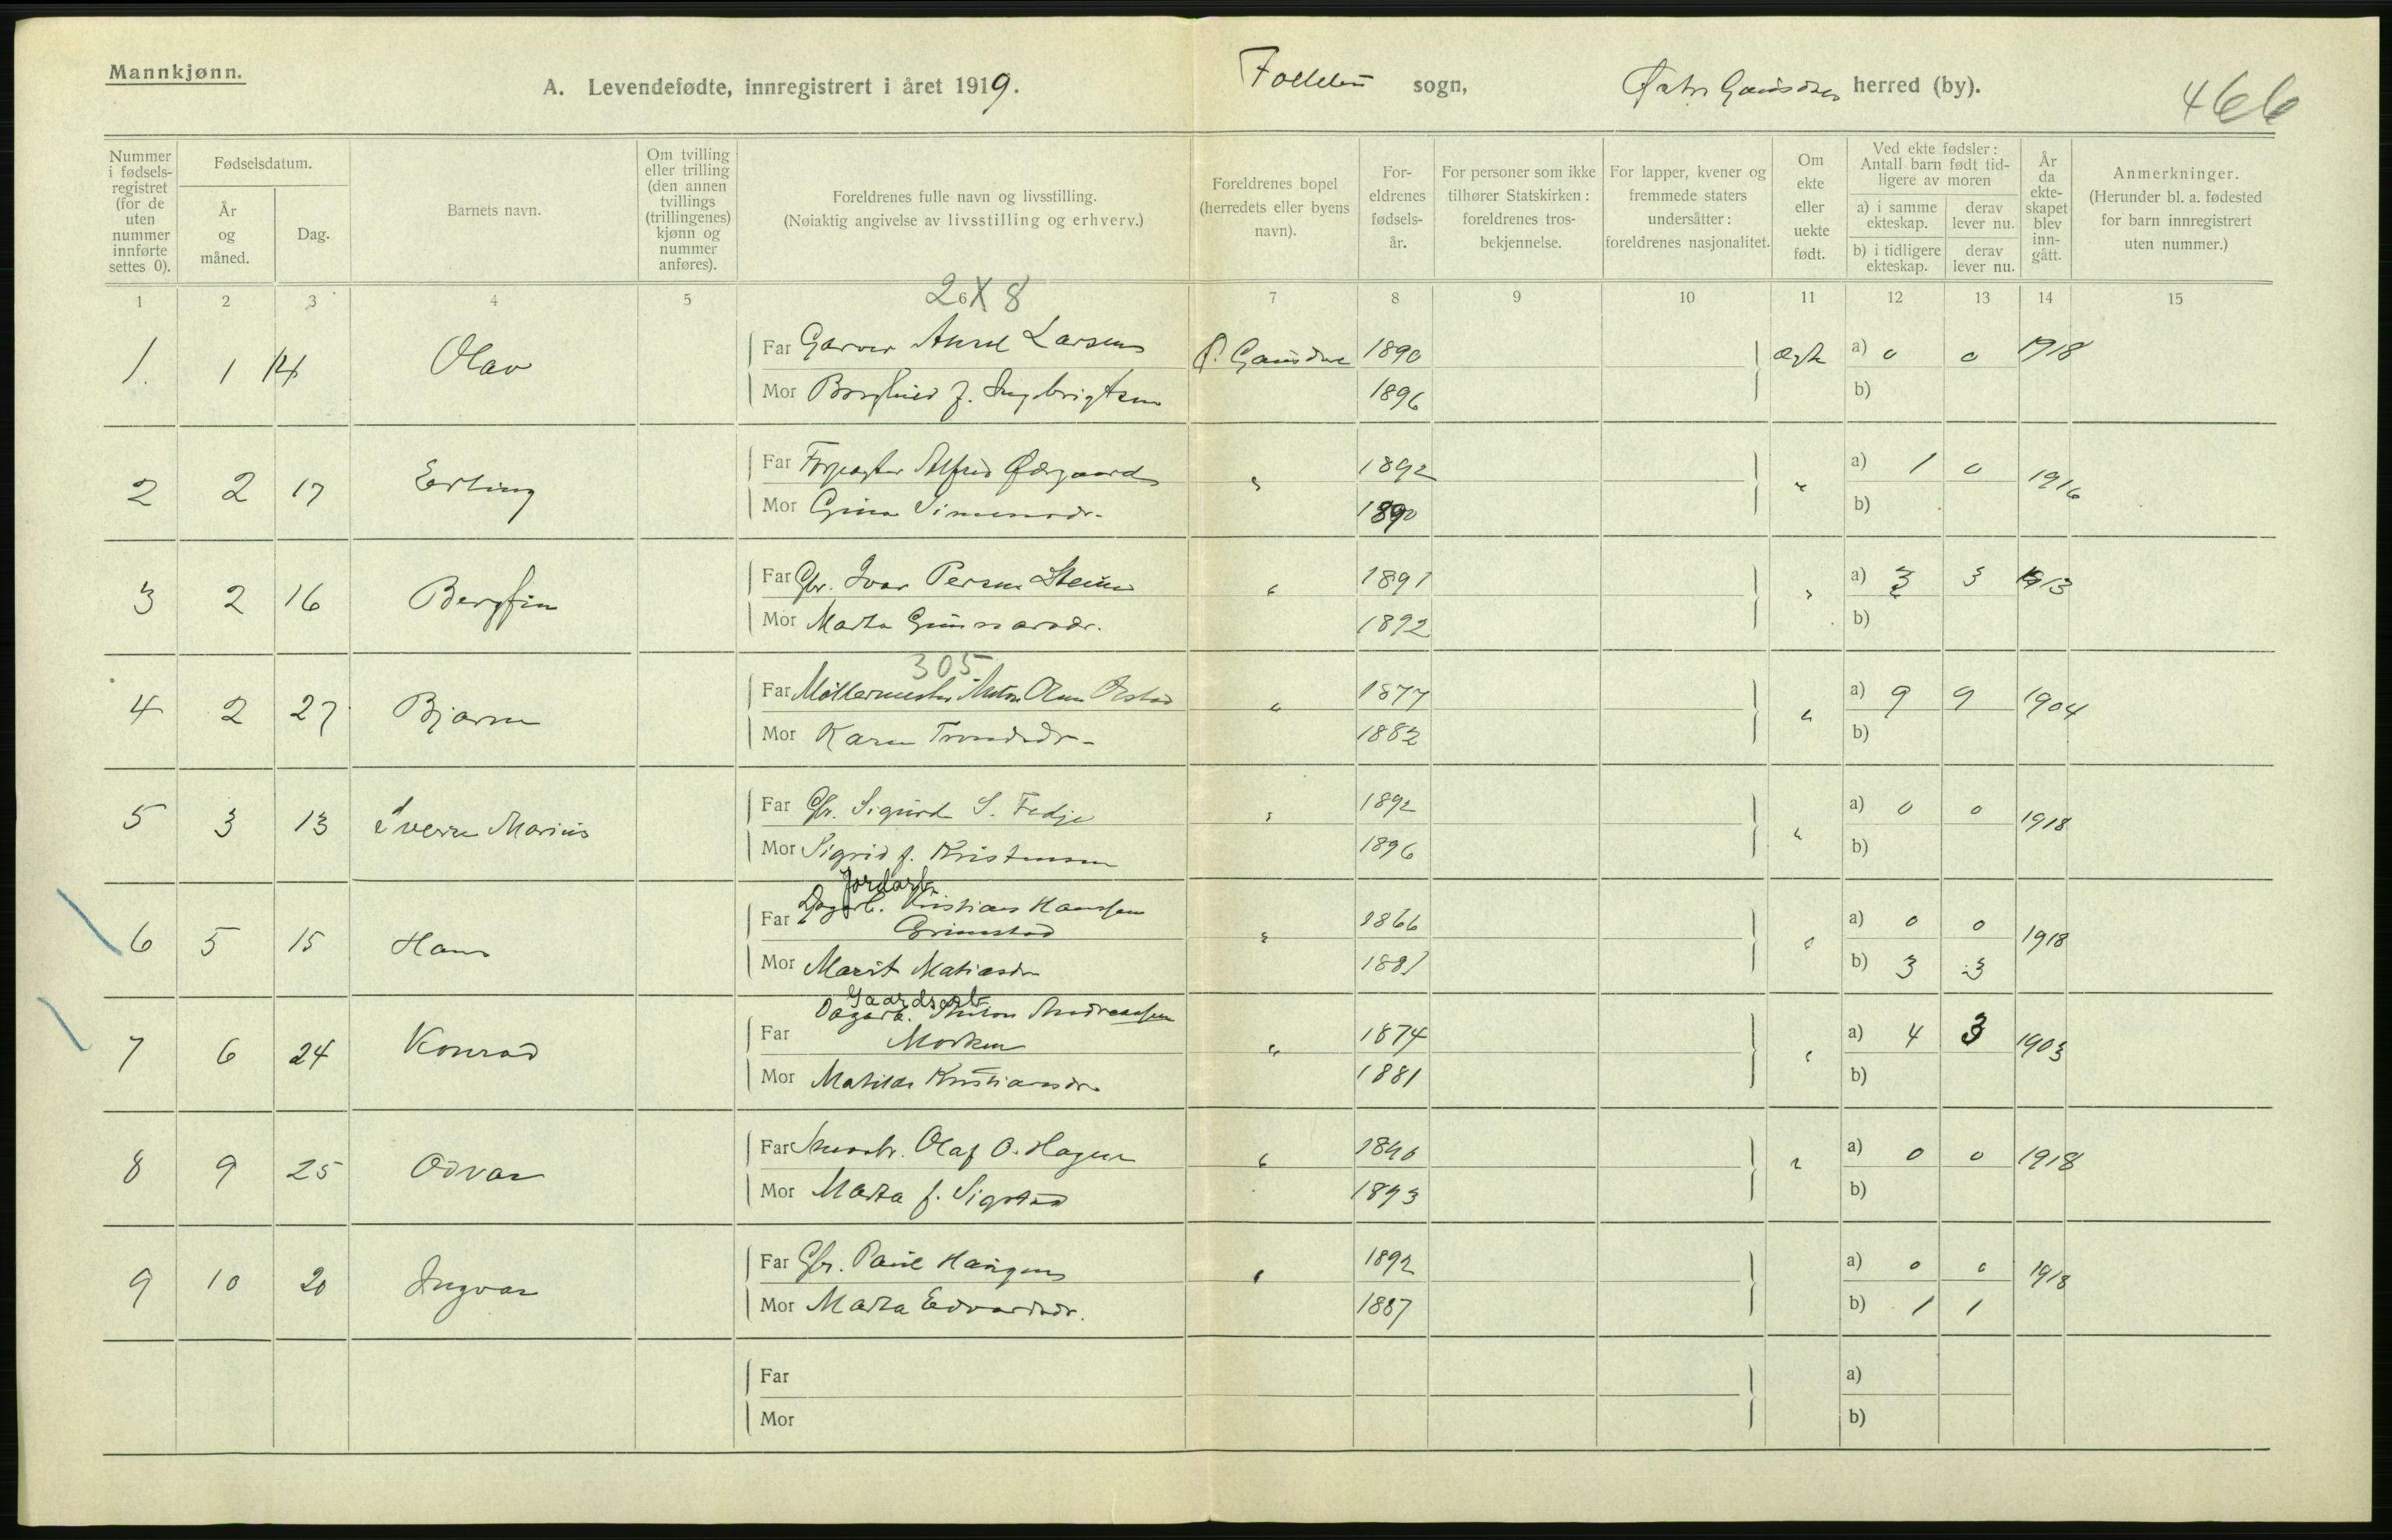 Mannkjønn.
A. Levendefødte, innregistrert i året 1919.
sogn,
herred (by).
466
Nummer i fødselsregistret (for de uten nummer innførte settes 0).
Fødselsdatum.
År og måned.
Dag.
Barnets navn.
Om tvilling eller trilling (den annen tvillings (trillingenes) kjønn og nummer anføres).
Foreldrenes fulle navn og livsstilling.
(Nøiaktig angivelse av livsstilling og erhverv.)
Foreldrenes bopel (herredets eller byens navn).
Foreldrenes fødselsår.
For personer som ikke tilhører Statskirken: foreldrenes trosbekjennelse.
For lapper, kvener og fremmede staters undersåtter: foreldrenes nasjonalitet.
Om ekte eller uekte født.
Ved ekte fødsler: Antall barn født tidligere av moren
a) i samme ekteskap.
derav lever nu.
b) i tidligere ekteskap.
derav lever nu.
År da ekteskapet blev inngått.
Anmerkninger.
(Herunder bl. a. fødested for barn innregistrert uten nummer.)
1 2 3 4 5 6 7 8 9 10 11 12 13 14 15
2 X 8
1. 1 14 Olav
Far Garver Larsen Ø. Gausdal 1890 ægte a) 0 0 1918
Mor Borghild f. Ingebrigtsen 1896 b)
2 2 17 Erling
Far Forpagter Alfred Ødegaard " 1892 " a) 1 0 1916
Mor Gina Simensdr. 1890 b)
3 2 16 Bergfin
Far Gbr. Ivar Persen " 1891 " a) 3 3 1913
Mor Marta Gunnarsdr. 1892 b)
305
4 2 27 Bjarne
Far Møllermester Anton Olsen " 1877 " a) 9 9 1904
Mor Karen Trondsdr. 1882 b)
5 3 13 Sverre Marius
Far Gbr. Sigurd S. Fedje " 1892 " a) 0 0 1918
Mor Sigrid f. Kristensen 1896 b)
Jordarb.
6 5 15 Hans
Far Dagarb. Kristian Hansen
Grimstad " 1866 " a) 0 0 1918
Mor Marit Matiasdr. 1881 b) 3 3
Gaardsarb.
7 6 24 Konrad
Far Dagarb. Anton Andreassen
Morken " 1874 " a) 4 3 1903
Mor Matilde Kristiansdr. 1881 b)
8 9 25 Odvar
Far Olaf O. Hagen " " a) 0 0 1918
Mor Marta f. Sigstad 1893 b)
9 10 20 Ingvar
Far Gbr. Paul Haugen " 1892 a) 0 0 1918
Mor Marta Edvardsdr. 1887 b) 1 1
Far a)
Mor b)